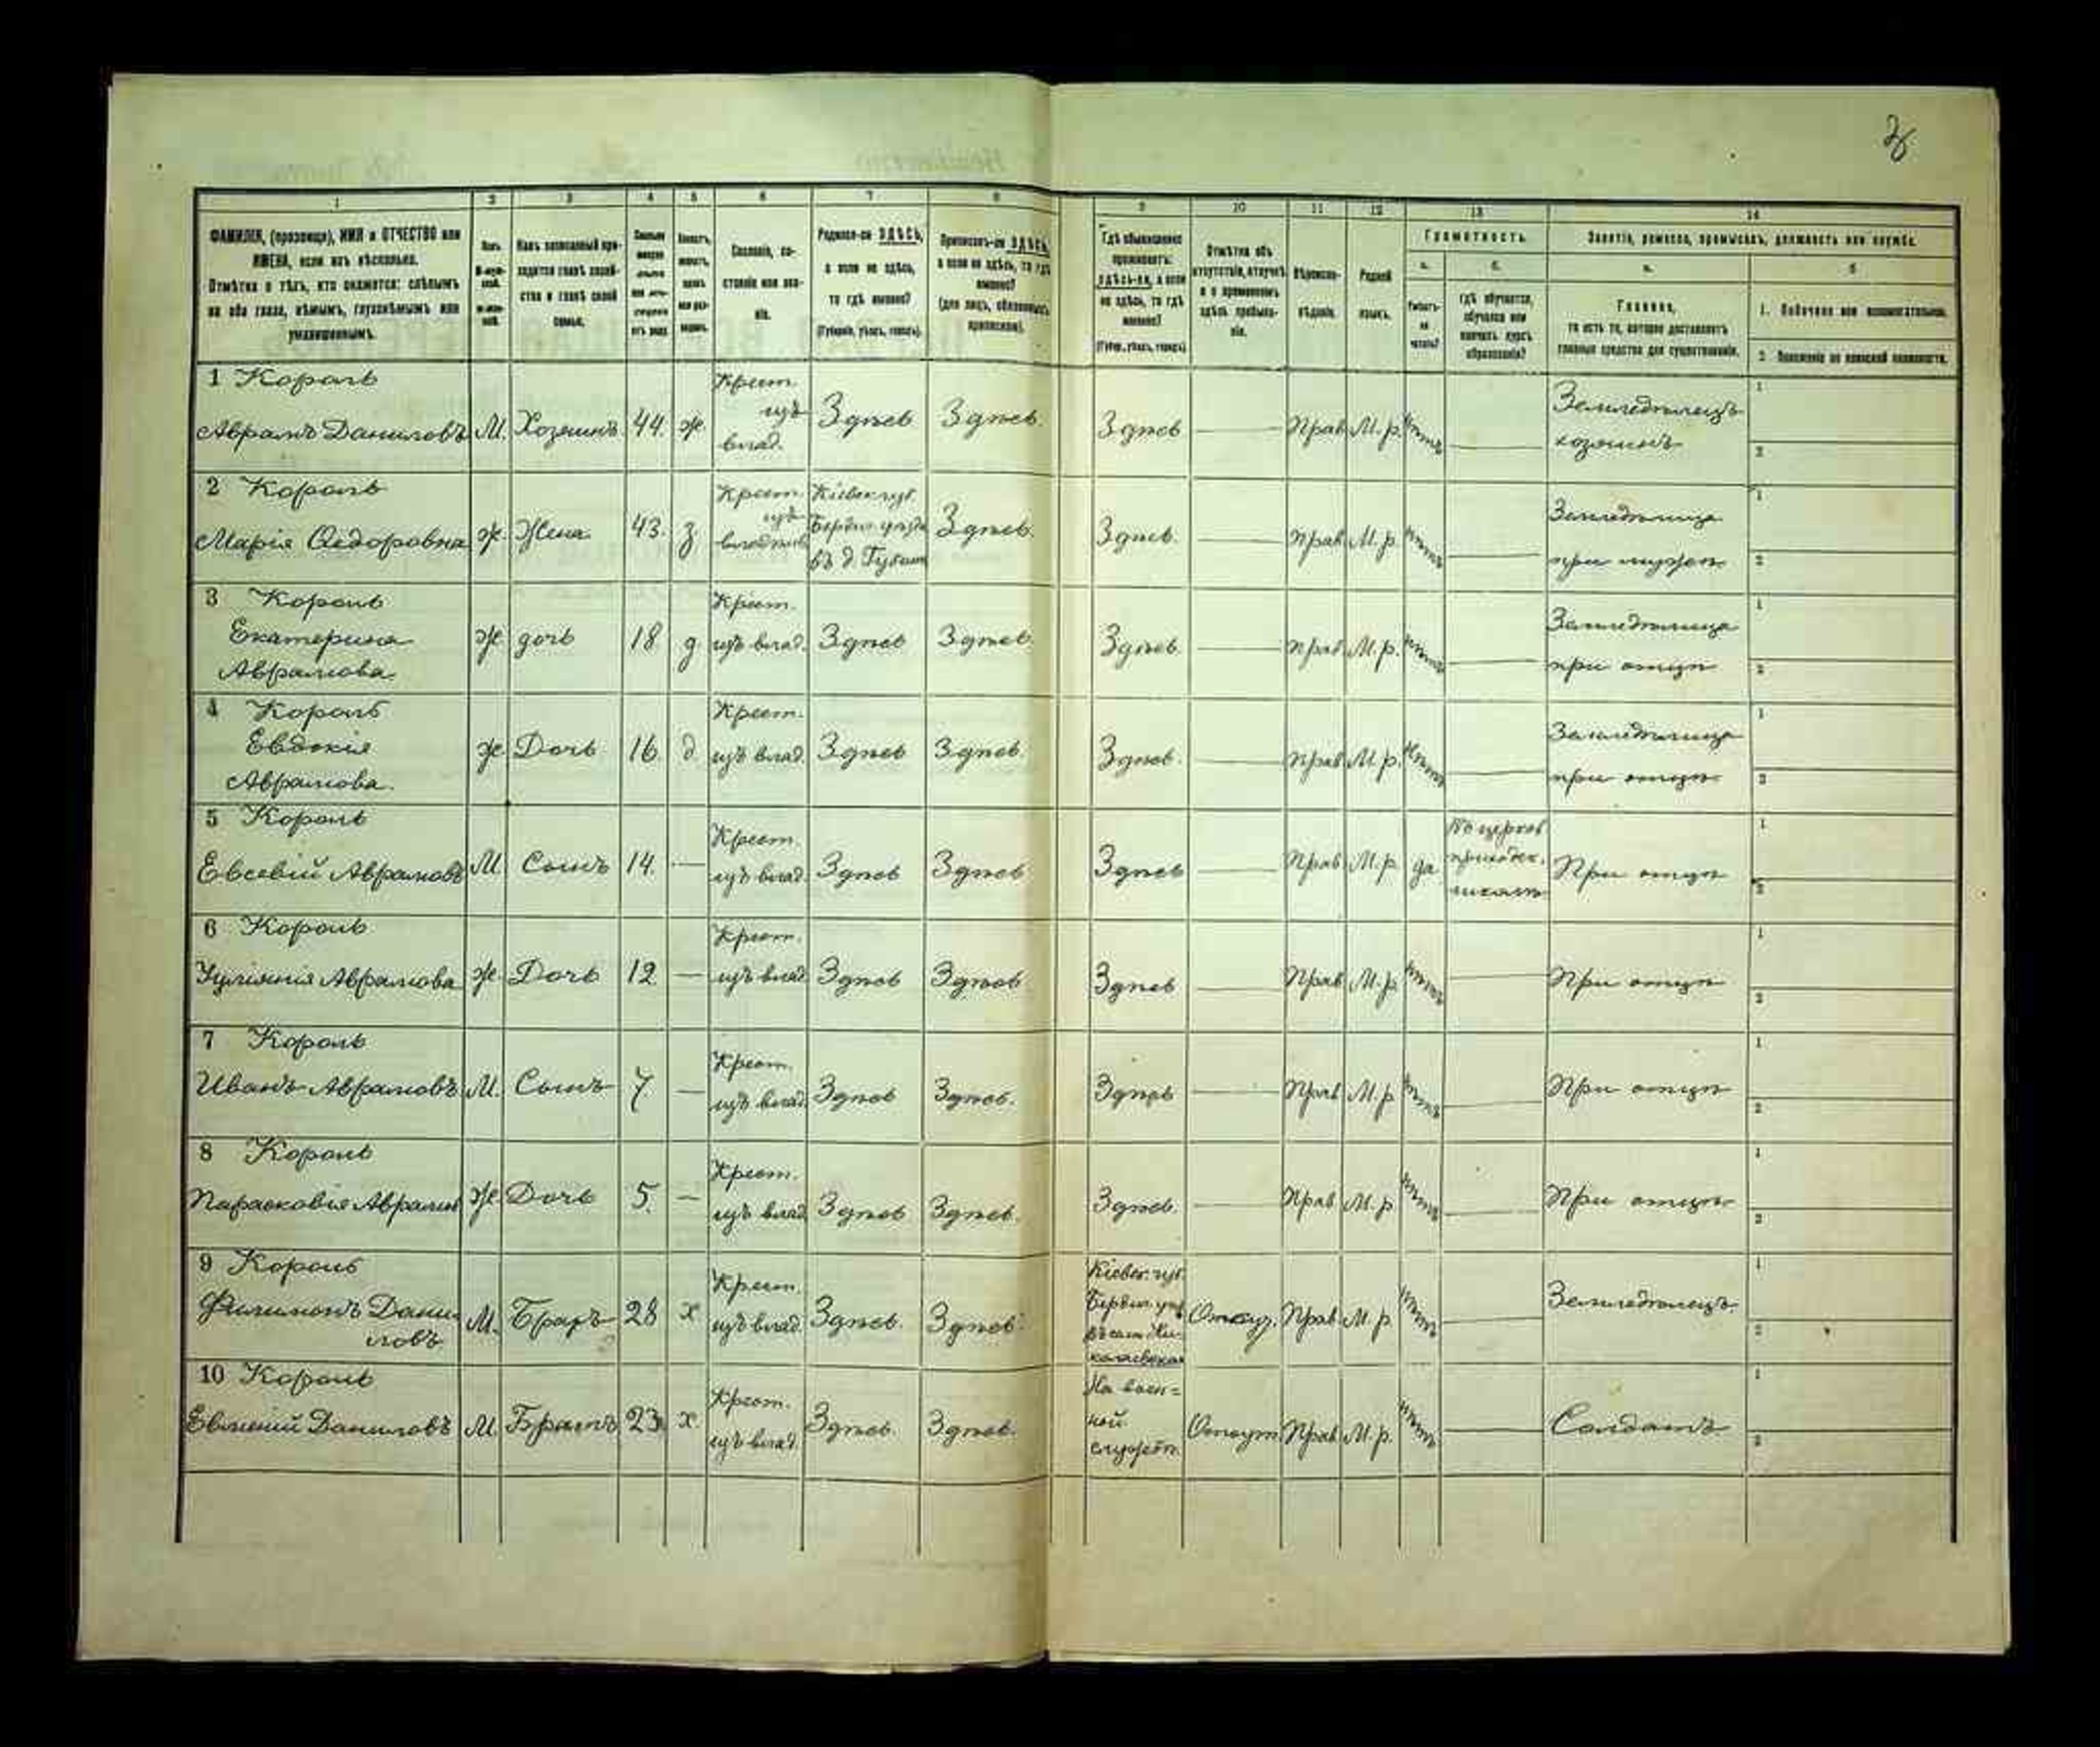 1 2 3 4 5 6 7 8 9 10 11 12 13 14
ФАМИЛІЯ, (прозвище), ИМЯ и ОТЧЕСТВО или ИМЕНА, если ихъ нѣсколько.
Отмѣтка о тѣхъ, кто окажется: слѣпымъ на оба глаза, нѣмымъ, глухонѣмымъ или умалишеннымъ.
Сословіе, состояніе или званіе.
Родился-ли ЗДѢСЬ, а если не здѣсь, то гдѣ именно?
(Губернія, уѣздъ, городъ).
Приписанъ-ли ЗДѢСЬ, а если не здѣсь, то гдѣ именно?
(для лицъ, обязанныхъ припискою).
Гдѣ обыкновенно проживаетъ: здѣсь-ли, а если не здѣсь, то гдѣ именно?
(Губер., уѣздъ, городъ).
Отмѣтка объ отсутствіи, отлучкѣ и о временномъ здѣсь пребываніи.
Вѣроисповѣданіе.
Родной языкъ.
Грамотность.
а. б.
Умѣетъ-ли читать?
гдѣ обучается, обучался или кончилъ курсъ образованія?
Занятіе, ремесло, промыселъ, должность или служба.
а. б
Главное,
то есть то, которое доставляетъ главныя средства для существованія.
1. Побочное или вспомогательное.
2. Положеніе по воинской повинности.
1 Король
Аврамъ Даниловъ М. Хозяинъ 44. ж. Крест. изъ влад. Здѣсь Здѣсь. Здѣсь Прав М. р. нѣтъ Земледѣлецъ хозяинъ 1 2
2 Король
Марія Ѳедоровна ж. Жена 43. з Крест. изъ Кіевск. губ. Бердич. уѣзда въ д. Здѣсь. Здѣсь. Прав М. р. нѣтъ Земледѣлица при мужѣ 1 2
3 Король
Екатерина
Аврамова. ж дочь 18 д Крест. изъ влад. Здѣсь Здѣсь. Здѣсь. Прав М. р. нѣтъ Земледѣлица при отцѣ 1 2
4 Король
Евдокія
Аврамова. ж Дочь 16. д Крест. изъ влад. Здѣсь Здѣсь. Здѣсь. Прав М. р. нѣтъ Земледѣлица при отцѣ 1 2
5 Король
Евсевій Аврамовъ М. Сынъ 14. — Крест. изъ влад. Здѣсь Здѣсь Здѣсь Прав М. р. да Въ церков приходск. школѣ При отцѣ 1 2
6 Король
Уліянія Аврамова ж Дочь 12 — Крест. изъ влад Здѣсь Здѣсь Здѣсь Прав М. р. нѣтъ При отцѣ 1 2
7 Король
Иванъ Аврамовъ М. Сынъ 7. — Крест. изъ влад. Здѣсь Здѣсь. Здѣсь Прав М. р нѣтъ При отцѣ 1 2
8 Король
Парасковія Аврамов Ж Дочь 5. — Крест. изъ влад Здѣсь Здѣсь. Здѣсь. Прав М. р. нѣтъ При отцѣ 1 2
9 Король
Филимонъ Дани
ловъ М. Братъ 28 х Крест. изъ влад. Здѣсь. Здѣсь. Кіевск. губ. Бердич. уѣз. Отсут. Прав М. р. нѣтъ Земледѣлецъ. 1 2
10 Король
Евмений Даниловъ М. Братъ 23. х. Крест. изъ влад. Здѣсь. Здѣсь. На воен=
ной
службѣ. Отсут Прав М. р. нѣтъ Солдатъ 1 2